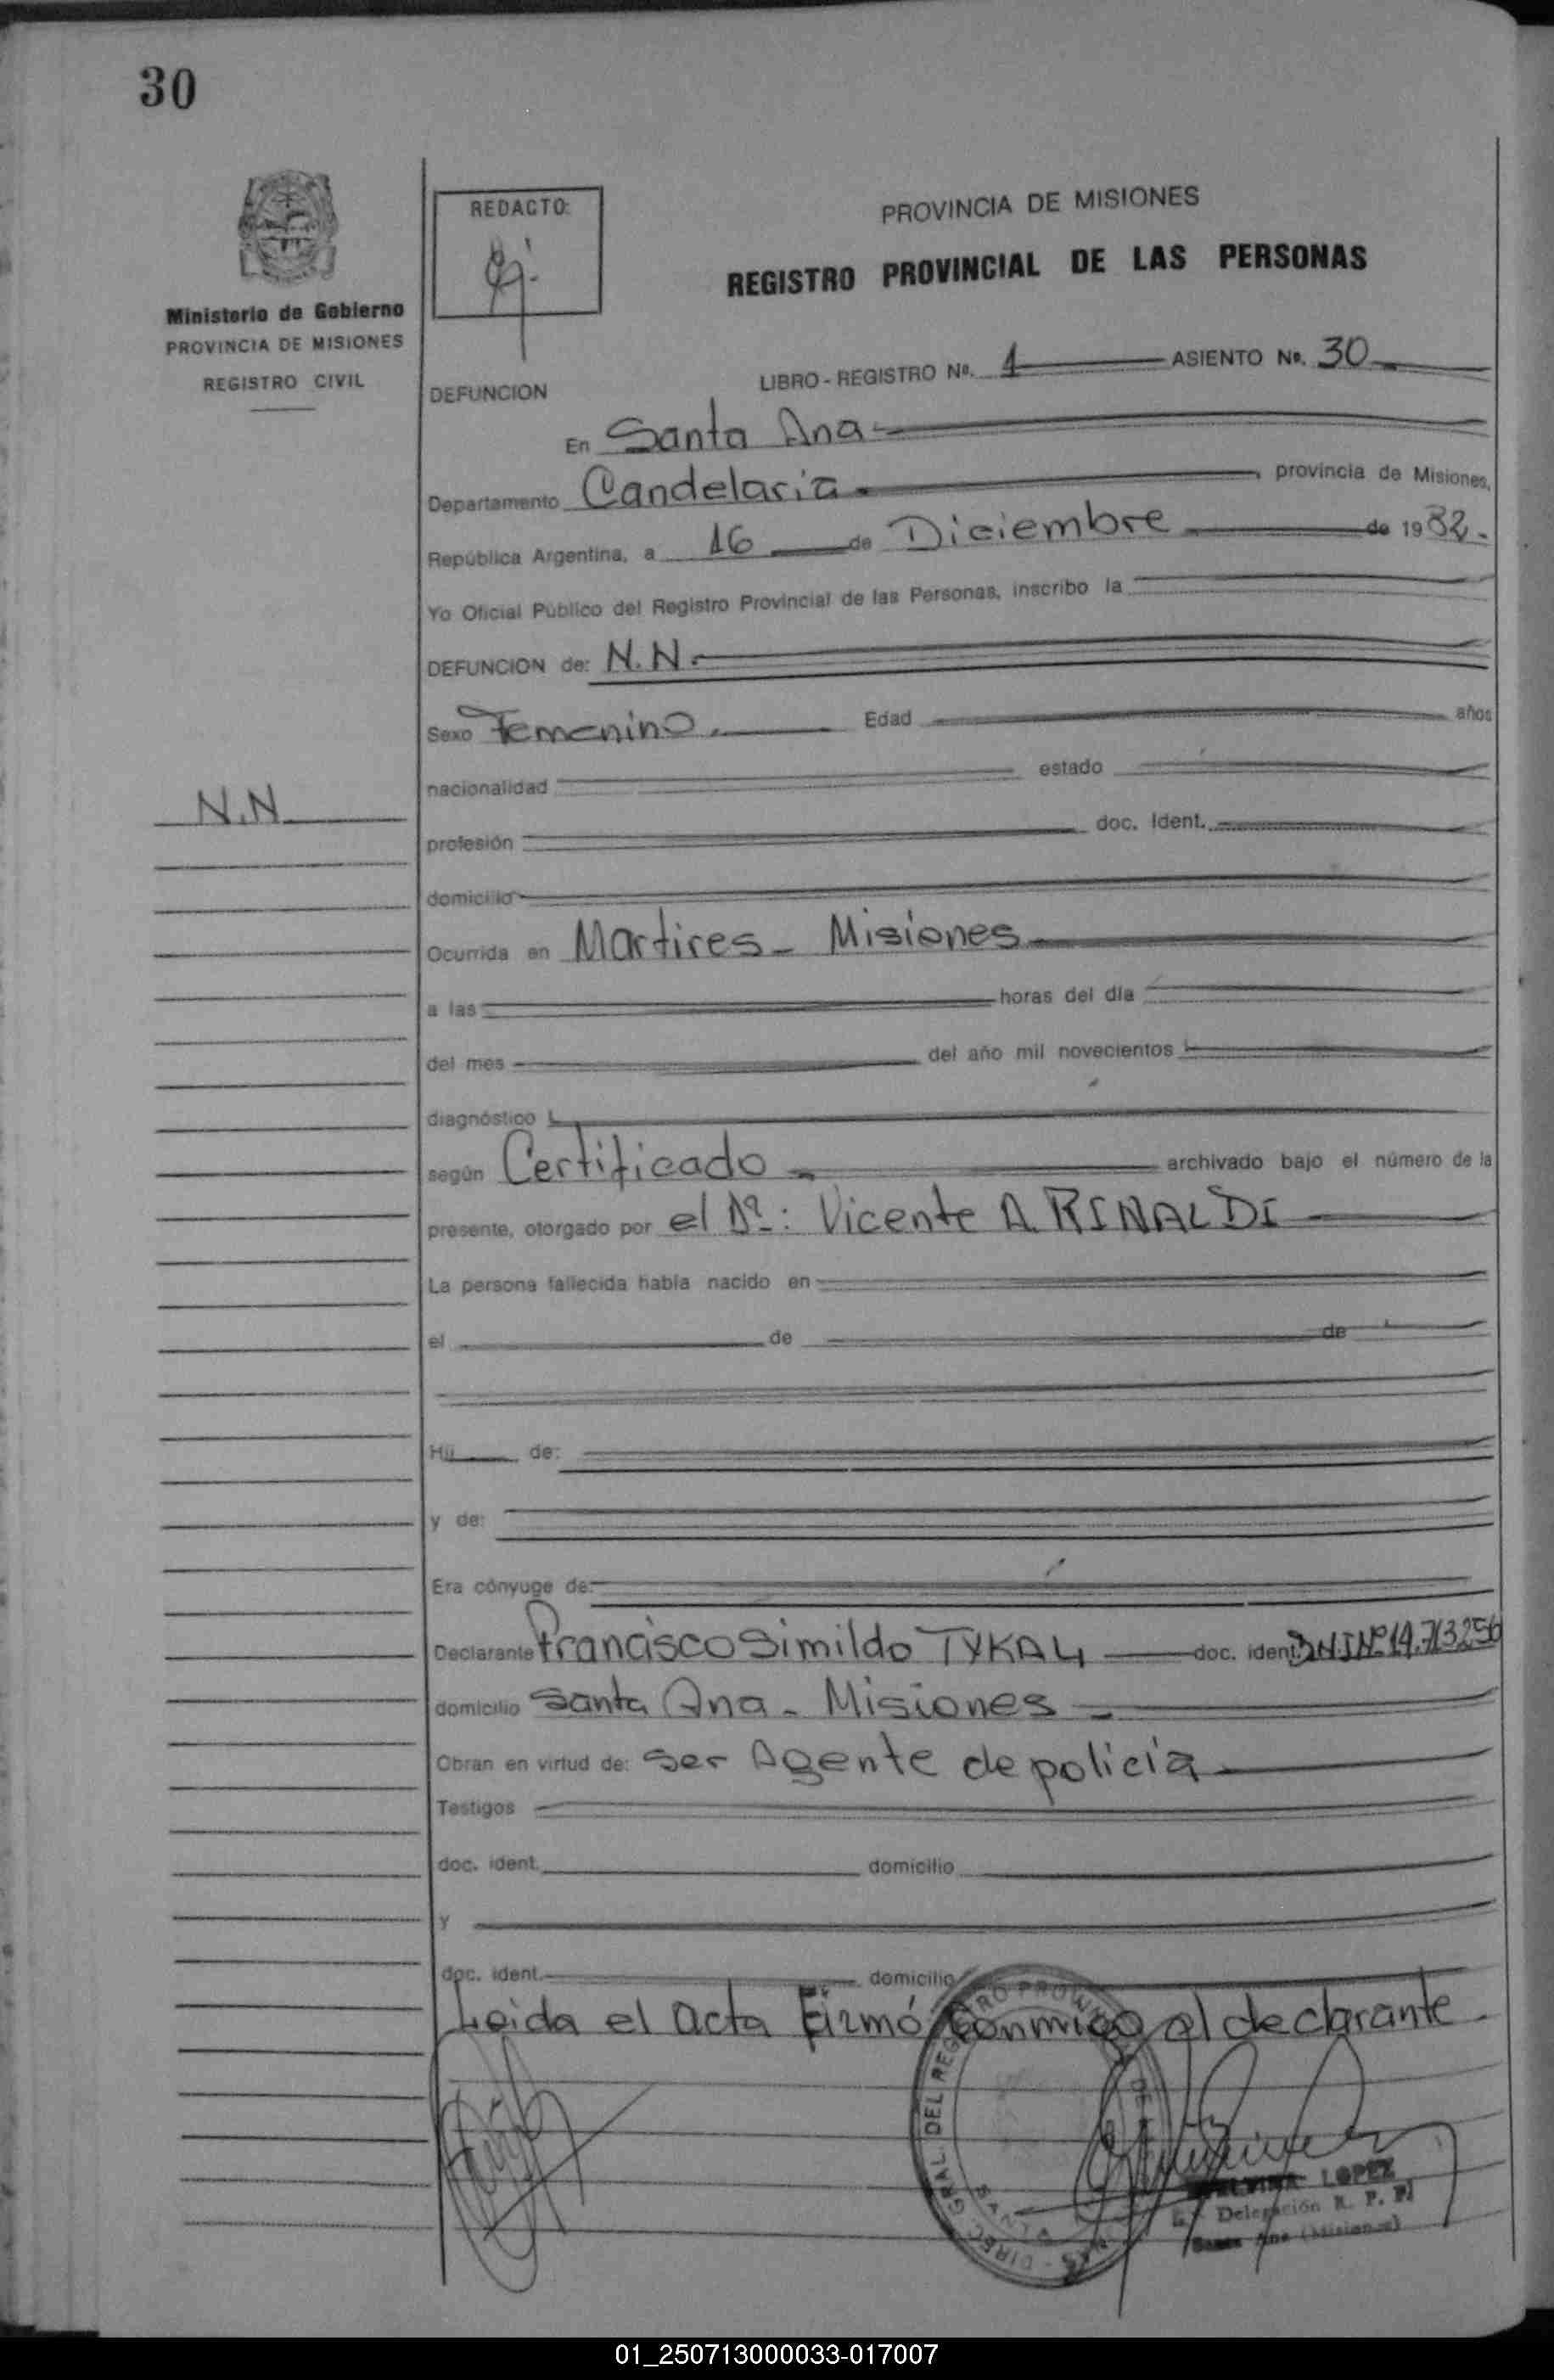 30
Ministerio de Gobierno
PROVINCIA DE MISIONES
REGISTRO CIVIL
REDACTO:
PROVINCIA DE MISIONES
REGISTRO PROVINCIAL DE LAS PERSONAS
DEFUNCION
LIBRO - REGISTRO Nº. 1 ASIENTO Nº. 30
En Santa Ana
Departamento Candelaria , provincia de Misiones,
República Argentina, a 16 de Diciembre de 1982.
Yo Oficial Público del Registro Provincial de las Personas, inscribo la
DEFUNCION de: N.N.
Sexo Femenino. Edad años
nacionalidad estado
N.N
profesión doc. Ident.
domicilio
Ocurrida en Martires - Misiones
a las horas del día
del mes del año mil novecientos
diagnóstico
según Certificado archivado bajo el número de la
presente, otorgado por el Dr: Vicente A. RINALDI
La persona fallecida había nacido en
el de de
Hij de:
y de:
Era cónyuge de:
Declarante Francisco Simildo TYKAL doc. ident. DNI Nº 14.713256
domicilio Santa Ana - Misiones
Obran en virtud de: ser Agente de policia
Testigos
doc. ident. domicilio
y
doc. ident. domicilio
Leida el acta Firmó conmigo el declarante.
DIREC. GRAL. DEL REGISTRO
LOPEZ
Delegación R. P. P.
Santa Ana (Misiones)
01_250713000033-017007